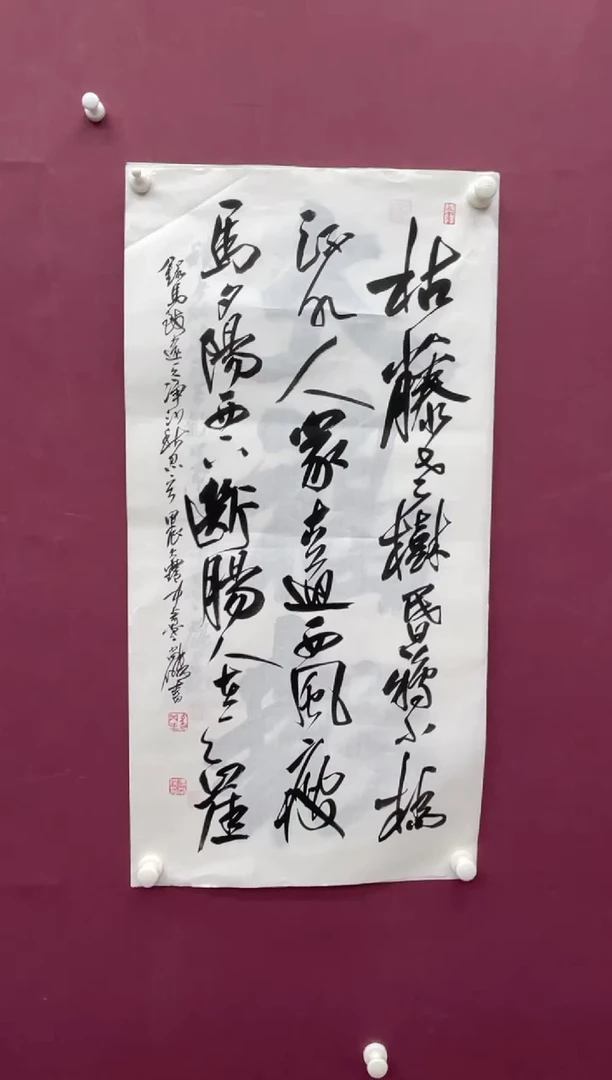 枯藤老樹昏鴉小橋
流水人家古道西風瘦
馬夕陽西下断腸人在天崖
錄馬致遠天净沙秋思
書